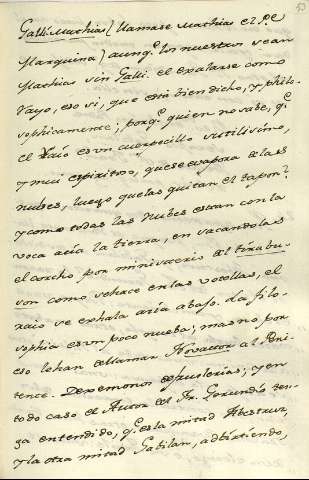 53
Galli Mathias (llamase Mathias el Pe
Marquina) aunqe. los nuestros sean
Mathias sin Galli. el exalarse como
Rayo, eso si, que está bien dicho, y philo-
sophicamente; porqe. quien no sabe, qe.
el Raio es vn cuerpecillo sutilissimo,
y mui espirituso, que se evapora de las
nubes, luego que las quitan el tapon?
y como todas las Nubes estan con la
voca acia la tierra, en sacandolas
el corcho por ministerio del tirabu-
son como sehace en las votellas, el
raio se exhala acia abajo. La filo-
sophia es vn poco nueba; mas no por
eso lo han de llamar Novator al Peni-
tente. Dexemonos de fruslerias; y en
todo caso el Autor del Fr. Gerundio ten-
ga entendido, qe. es la mitad Abestruz,
y la otra mitad Gabilan, adbirtiendo,